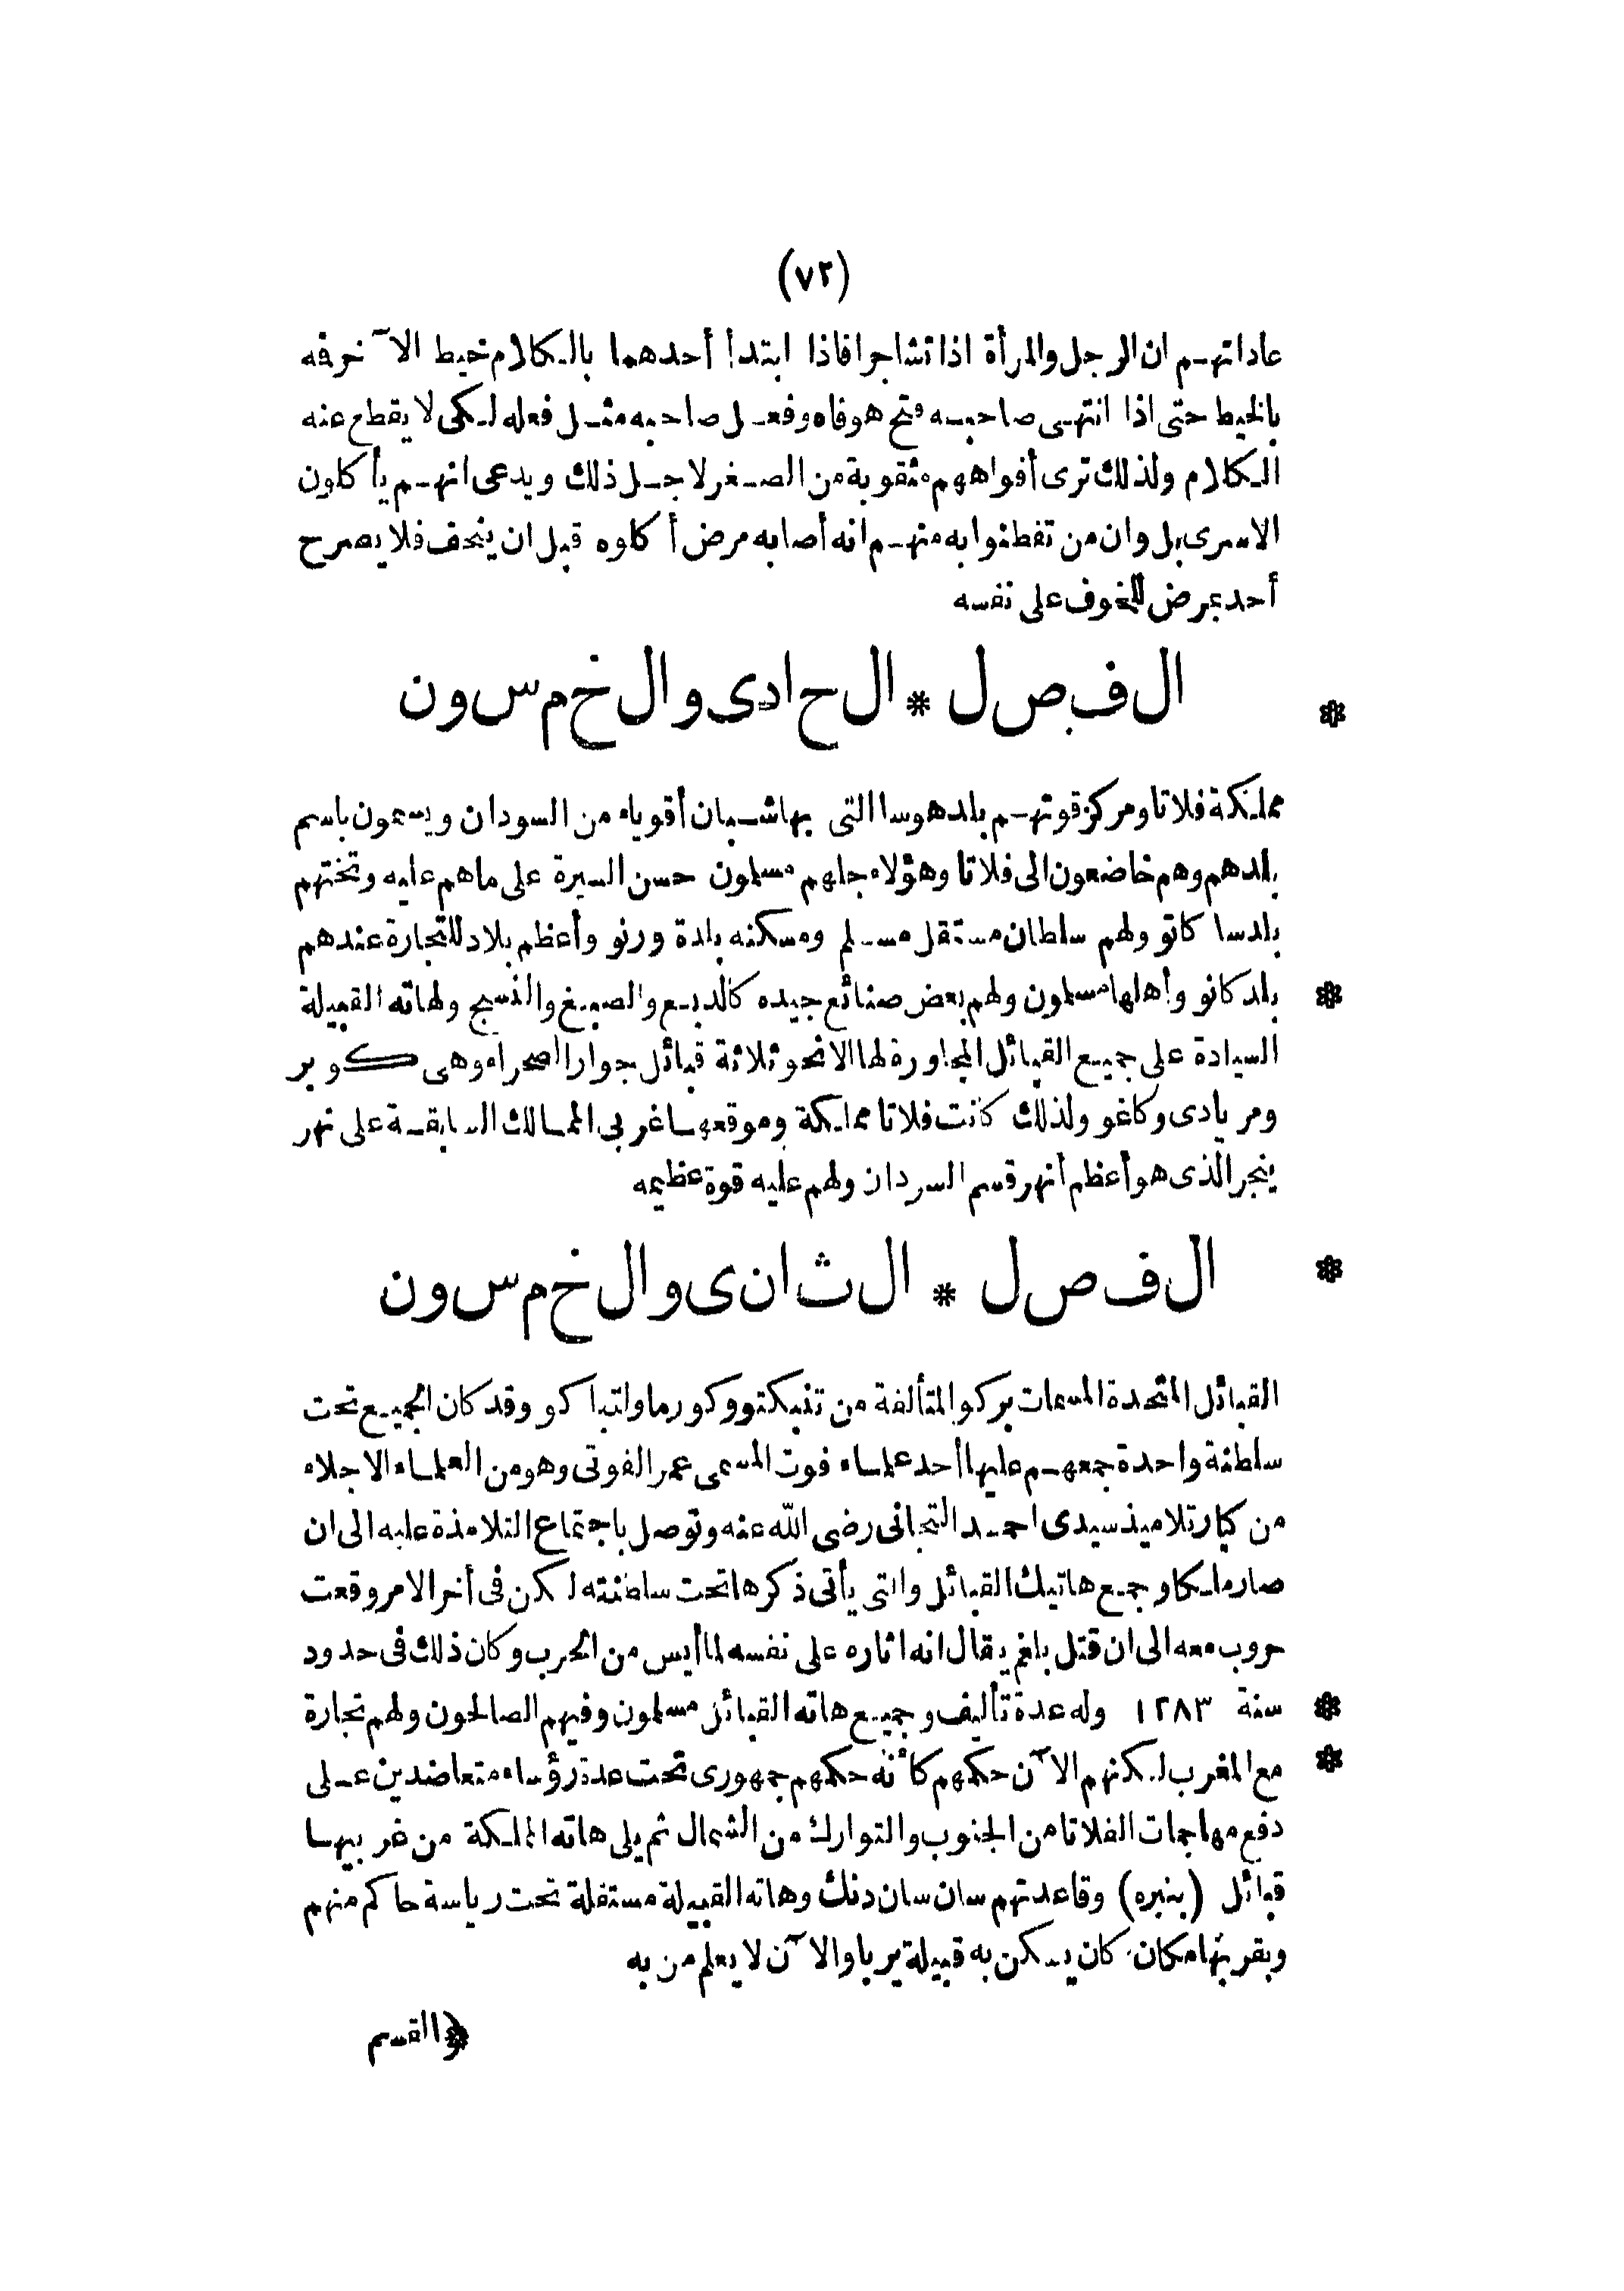 (٧٢)
عاداتهم ان الرجل والمرأة اذا تشاجرا فاذا ابتدأ أحدهما بالكلام خيط الآخر فه
بالخيط حتى اذا انتهى صاحبه فتح هو فاه وفعل صاحبه مثل فعله لكى لا يقطع عنه
الكلام ولذلك ترى أفواههم مثقوبة من الصغر لاجل ذلك ويدعى انهم يأكلون
الاسرى بل وان من تفطنوا به منهم انه أصابه مرض أكلوه قبل ان ينحف فلا يصرح
أحد بمرض للخوف على نفسه
الفصل * الحادى والخمسون
مملكة فلاتا ومركز قوتهم بلد هوسا التى بها شبان أقوياء من السودان ويسمون باسم
بلدهم وهم خاضعون الى فلاتا وهؤلاء جلهم مسلمون حسن السيرة على ما هم عليه وتختهم
بلد سا كاتو ولهم سلطان مستقل مسلم ومسكنه بلدة ورنو وأعظم بلاد للتجارة عندهم
بلد كانو وأهلها مسلمون ولهم بعض صنائع جيده كالدبغ والصبغ والنسج ولهاته القبيلة
السيادة على جميع القبائل المجاورة لها الا نحو ثلاثة قبائل جوار الصحراء وهى كوبر
ومريادى وكاغو ولذلك كانت فلاتا مملكة وموقعها غربى الممالك السابقة على نهر
ينجر الذى هو أعظم أنهر قسم السودان ولهم عليه قوة عظيمه
الفصل * الثانى والخمسون
القبائل المتحدة المسمات بركو المتألفة من تنبكتو وكورما ولتباكو وقد كان الجميع تحت
سلطنة واحدة جمعهم عليها أحد علماء فوت المسمى عمر الفوتى وهو من العلماء الاجلاء
من كبار تلاميذ سيدى احمد التجانى رضى الله عنه وتوصل باجتماع التلامذة عليه الى ان
صار ملكا وجميع هاتيك القبائل والتى يأتى ذكرها تحت سلطنته لكن فى أخر الامر وقعت
حروب معه الى ان قتل بلغم يقال انه اثاره على نفسه لما أيس من الحرب وكان ذلك فى حدود
سنة ١٢٨٣ وله عدة تأليف وجميع هاته القبائل مسلمون وفيهم الصالحون ولهم تجارة
مع المغرب لكنهم الآن حكمهم كأنه حكمهم جمهورى تحت عدة رؤساء متعاضدين على
دفع مهاجمات الفلاتا من الجنوب والتوارك من الشمال ثم يلى هاته المملكة من غربيها
قبائل (بنبره) وقاعدتهم سان سان دنك وهاته القبيلة مستقلة تحت رياسة حاكم منهم
وبقربها مكان كان يسكن به قبيلة يربا والآن لا يعلم من به
والقسم